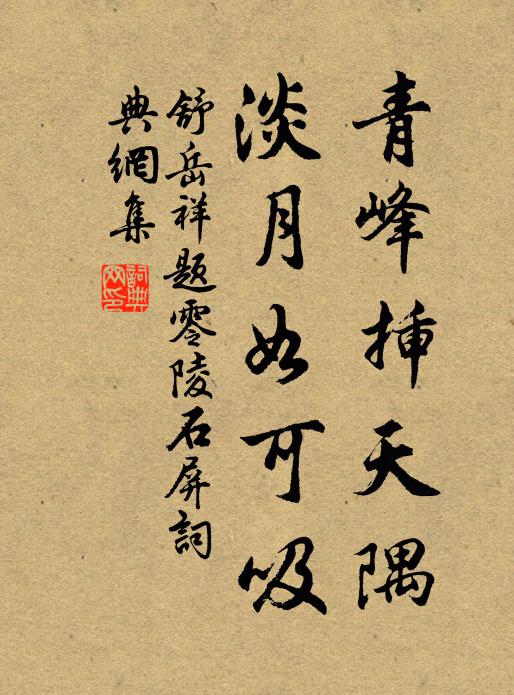 青峰插天隅
淡月如可吸
舒岳祥题零陵石屏詞
典網集
詞典网印